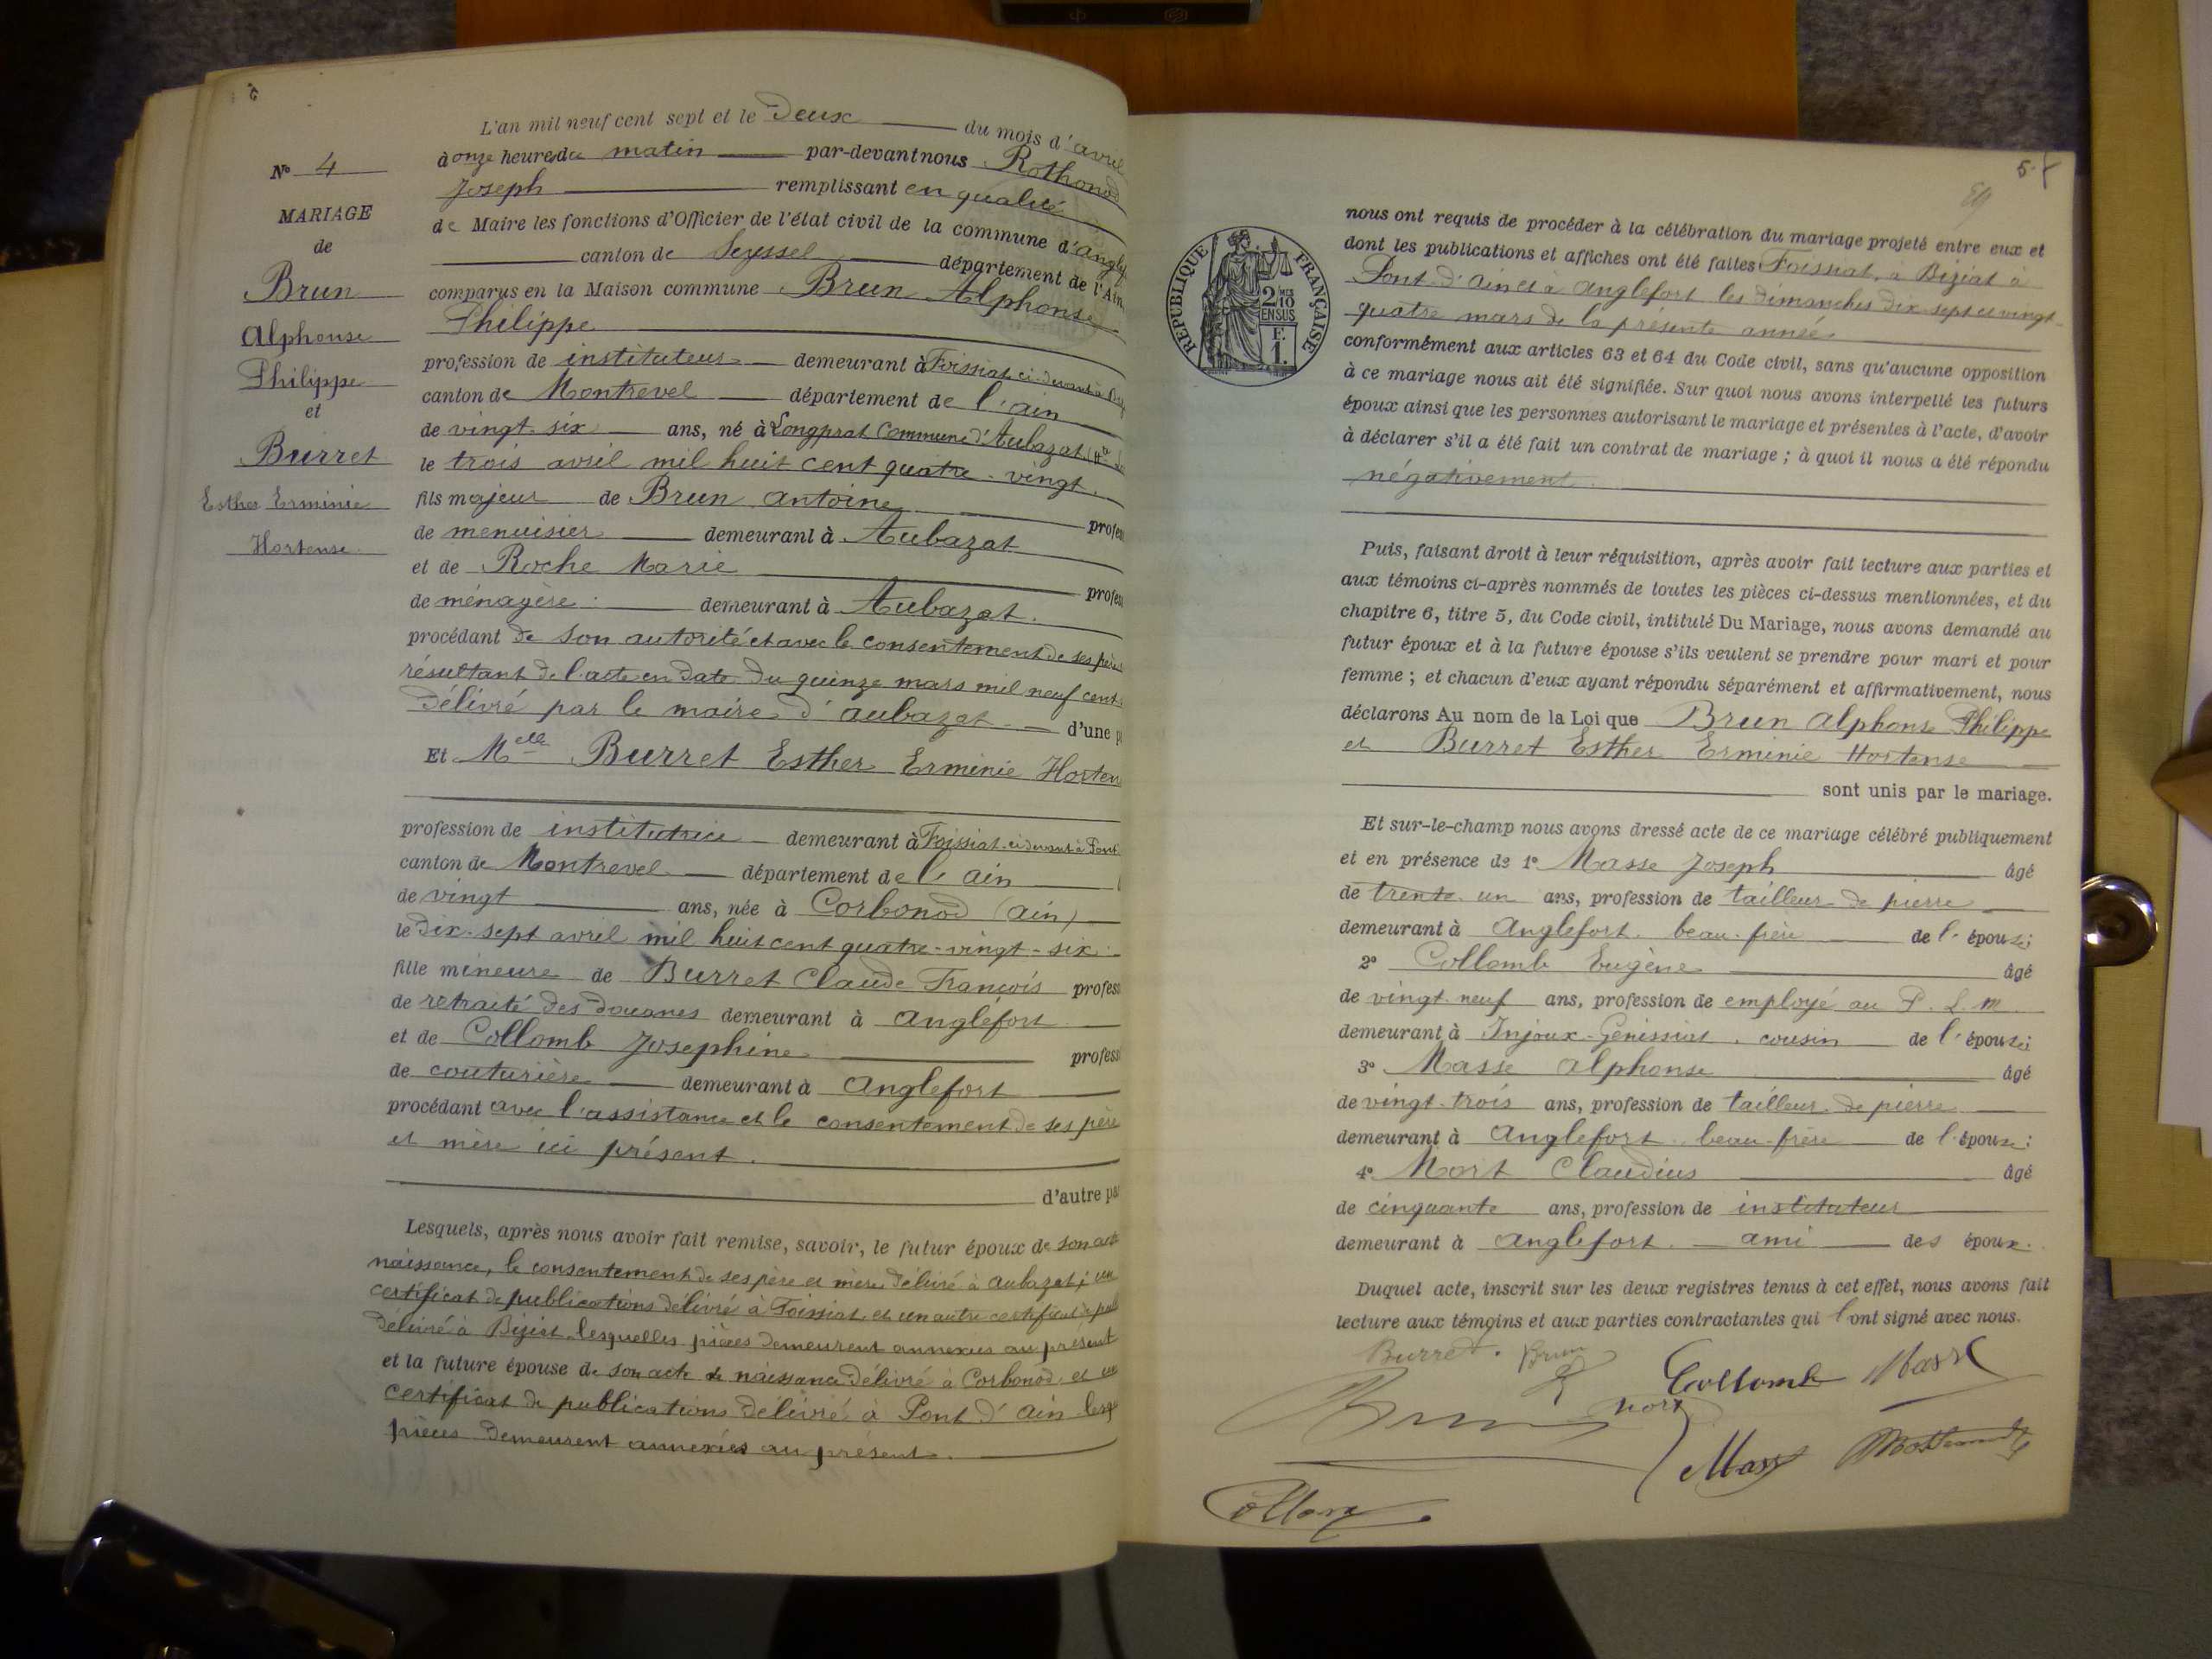 L'an mil neuf cent sept et le Deux du mois d'avril
à onze heures du matin par-devant nous Rothonod
Joseph remplissant en qualité
de Maire les fonctions d'Officier de l'état civil de la commune d'Anglef
canton de Seyssel département de l'Ain
comparus en la Maison commune Brun Alphonse
Philippe
profession de instituteur demeurant à Foissiat ci-devant à
canton de Montrevel département de l'ain
de vingt six ans, né à Longprat Commune d'Aubazat
le trois avril mil huit cent quatre-vingt
fils majeur de Brun antoine profes
de menuisier demeurant à Aubazat
et de Roche Marie profes
de ménagère demeurant à Aubazat
procédant de son autorité et avec le consentement de ses père
résultant de l'acte en date du quinze mars mil neuf cent
délivré par le maire d'aubazat d'une p
Et Melle Burret Esther Erminie Horten
profession de institutrice demeurant à Foissiat ci devant à Pont
canton de Montrevel département de l'ain
de vingt ans, née à Corbonod (ain)
le dix-sept avril mil huit cent quatre-vingt-six
fille mineure de Burret Claude François profess
de retraité des douanes demeurant à Anglefort
et de Collomb Josephine profess
de couturière demeurant à Anglefort
procédant avec l'assistance et le consentement de ses père
et mère ici présent.
d'autre pa
Lesquels, après nous avoir fait remise, savoir, le futur époux de son acte
naissance, le consentement de ses père et mère délivré à aubazat; un
certificat de publications délivré à Foissiat et un autre certificat de pub
délivré à Biziat lesquelles pièces demeurent annexées au présent
et la future épouse de son acte de naissance délivré à Corbonod et un
certificat de publications délivré à Pont d'ain lesq
pièces demeurent annexées au présent.
No 4
MARIAGE
de
Brun
Alphonse
Philippe
et
Burret
Esther Erminie
Hortense
5
RÉPUBLIQUE FRANÇAISE
2/10
EN SUS
F.
1.
nous ont requis de procéder à la célébration du mariage projeté entre eux et
dont les publications et affiches ont été faites Foissiat à Biziat à
Pont d'ain et à Anglefort les dimanches dix-sept et vingt
quatre mars de la présente année
conformément aux articles 63 et 64 du Code civil, sans qu'aucune opposition
à ce mariage nous ait été signifiée. Sur quoi nous avons interpellé les futurs
époux ainsi que les personnes autorisant le mariage et présentes à l'acte, d'avoir
à déclarer s'il a été fait un contrat de mariage ; à quoi il nous a été répondu
négativement
Puis, faisant droit à leur réquisition, après avoir fait lecture aux parties et
aux témoins ci-après nommés de toutes les pièces ci-dessus mentionnées, et du
chapitre 6, titre 5, du Code civil, intitulé Du Mariage, nous avons demandé au
futur époux et à la future épouse s'ils veulent se prendre pour mari et pour
femme ; et chacun d'eux ayant répondu séparément et affirmativement, nous
déclarons Au nom de la Loi que Brun Alphonse Philippe
et Burret Esther Erminie Hortense
sont unis par le mariage.
Et sur-le-champ nous avons dressé acte de ce mariage célébré publiquement
et en présence de 1° Masse Joseph âgé
de trente un ans, profession de tailleur de pierre
demeurant à Anglefort beau-frère de l'épouse;
2° Collomb Eugène âgé
de vingt neuf ans, profession de employé au P. L. M.
demeurant à Injoux-Génissiat cousin de l'épouse;
3° Masse Alphonse âgé
de vingt-trois ans, profession de tailleur de pierre
demeurant à Anglefort beau-frère de l'épouse;
4° Mort Claudius âgé
de cinquante ans, profession de instituteur
demeurant à Anglefort ami des époux.
Duquel acte, inscrit sur les deux registres tenus à cet effet, nous avons fait
lecture aux témoins et aux parties contractantes qui l'ont signé avec nous.
Burret. Brun
Collomb Masse
Brun Mort
Masse